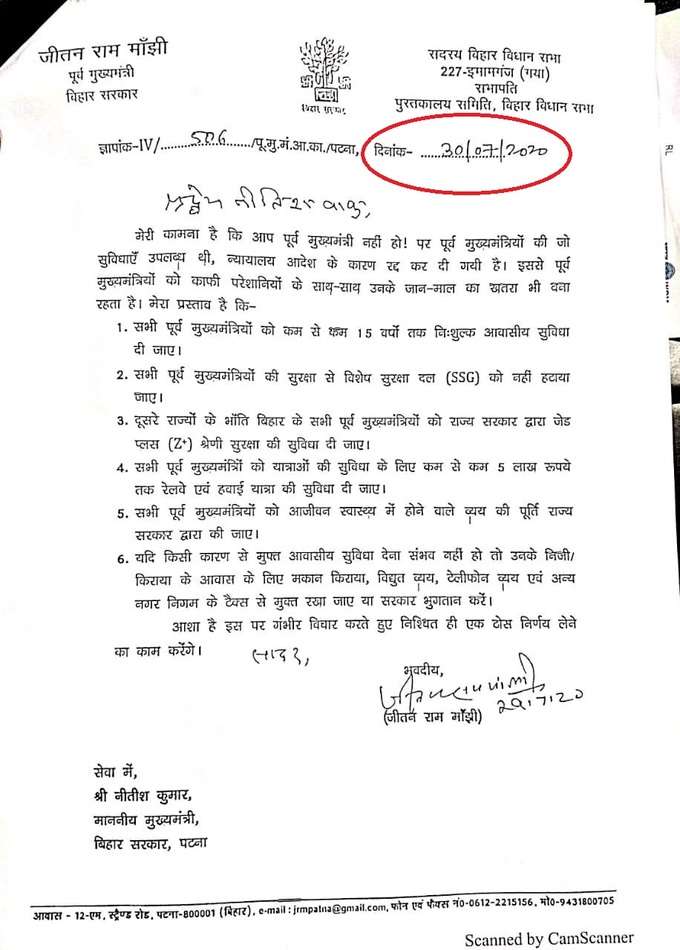 जीतन राम माँझी
पूर्व मुख्यमंत्री
बिहार सरकार
सदस्य बिहार विधान सभा
227-इमामगंज (गया)
सभापति
पुस्तकालय समिति, बिहार विधान सभा
ज्ञापांक-IV/.........506......./पू.मु.मं.आ.का./पटना, दिनांक- ....30/07/2020
श्रद्धेय नीतिश बाबु,
मेरी कामना है कि आप पूर्व मुख्यमंत्री नहीं हो! पर पूर्व मुख्यमंत्रियों की जो
सुविधाएँ उपलब्ध थी, न्यायालय आदेश के कारण रद्द कर दी गयी है। इससे पूर्व
मुख्यमंत्रियों को काफी परेशानियों के साथ-साथ उनके जान-माल का खतरा भी बना
रहता है। मेरा प्रस्ताव है कि–
1. सभी पूर्व मुख्यमंत्रियों को कम से कम 15 वर्षो तक निःशुल्क आवासीय सुविधा
दी जाए।
2. सभी पूर्व मुख्यमंत्रियों की सुरक्षा से विशेष सुरक्षा दल (SSG) को नहीं हटाया
जाए।
3. दूसरे राज्यों के भाँति बिहार के सभी पूर्व मुख्यमंत्रियों को राज्य सरकार द्वारा जेड
प्लस (Z⁺) श्रेणी सुरक्षा की सुविधा दी जाए।
4. सभी पूर्व मुख्यमंत्रिों को यात्राओं की सुविधा के लिए कम से कम 5 लाख रूपये
तक रेलवे एवं हवाई यात्रा की सुविधा दी जाए।
5. सभी पूर्व मुख्यमंत्रियों को आजीवन स्वास्थ्य में होने वाले व्यय की पूर्ति राज्य
सरकार द्वारा की जाए।
6. यदि किसी कारण से मुफ्त आवासीय सुविधा देना संभव नहीं हो तो उनके निजी/
किराया के आवास के लिए मकान किराया, विद्युत व्यय, टेलीफोन व्यय एवं अन्य
नगर निगम के टैक्स से मुक्त रखा जाए या सरकार भुगतान करें।
आशा है इस पर गंभीर विचार करते हुए निश्चित ही एक ठोस निर्णय लेने
का काम करेंगे।
सादर,
भवदीय,
29.7.20
(जीतन राम माँझी)
सेवा में,
श्री नीतीश कुमार,
माननीय मुख्यमंत्री,
बिहार सरकार, पटना
आवास - 12-एम, स्ट्रैण्ड रोड, पटना-800001 (बिहार), e-mail : jrmpatna@gmail.com, फोन एवं फैक्स नं0-0612-2215156, मो0-9431800705
Scanned by CamScanner